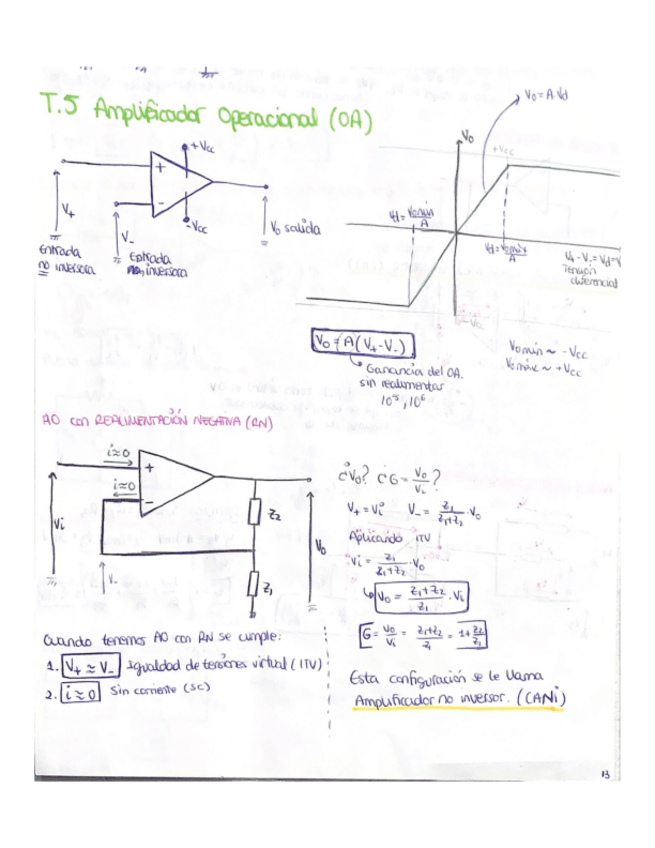 T.5 Amplificador Operacional (OA)
Vo = A·Vd
+Vcc
Vo
+Vcc
+
-
-Vcc
V+
V-
Vo salida
Entrada
no inversora
Entrada
inversora
Vd = Vomín/A
Vd = Vomáx/A
V+ - V- = Vd
Tensión
diferencial
-Vcc
Vo = A(V+ - V-)
Ganancia del OA.
sin realimentar
10^5, 10^6
Vomín ~ -Vcc
Vomáx ~ +Vcc
AO con REALIMENTACIÓN NEGATIVA (RN)
i≈0
+
i≈0
-
Z2
Vi
Vo
V-
Z1
¿Vo? ¿G = Vo/Vi ?
V+ = Vi V- = Z1/(Z1+Z2) · Vo
Aplicando ITV
Vi = Z1/(Z1+Z2) · Vo
Vo = (Z1+Z2)/Z1 · Vi
G = Vo/Vi = (Z1+Z2)/Z1 = 1+ Z2/Z1
Cuando tenemos AO con RN se cumple:
1. V+ ≈ V- Igualdad de tensiones virtual (ITV)
2. i ≈ 0 Sin corriente (SC)
Esta configuración se le llama
Amplificador no inversor. (CANi)
13